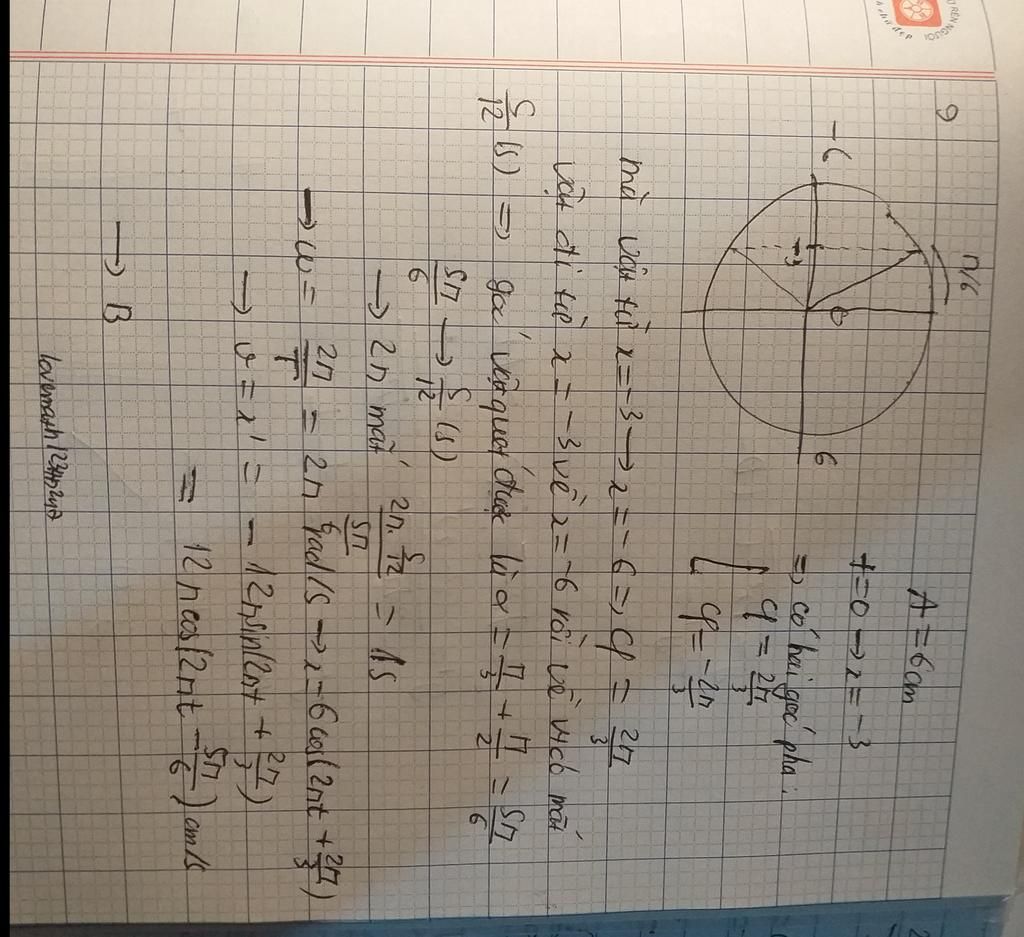 9
π/6
-6
-3
0
6
A = 6cm
t=0 → x = -3
=> có hai góc pha:
[ φ = 2π/3
φ = -2π/3
mà vật từ x = -3 → x = -6 => φ = 2π/3
vật đi từ x = -3 về x = -6 rồi về vtcb mất
5/12 (s) => góc vật quét được là α = π/3 + π/2 = 5π/6
5π/6 → 5/12 (s)
→ 2π mất (2π.5/12)/(5π/6) = 1s
→ ω = 2π/T = 2π rad/s → x = 6cos(2πt + 2π/3)
→ v = x' = - 12πsin(2πt + 2π/3)
= 12πcos(2πt - 5π/6) cm/s
→ B